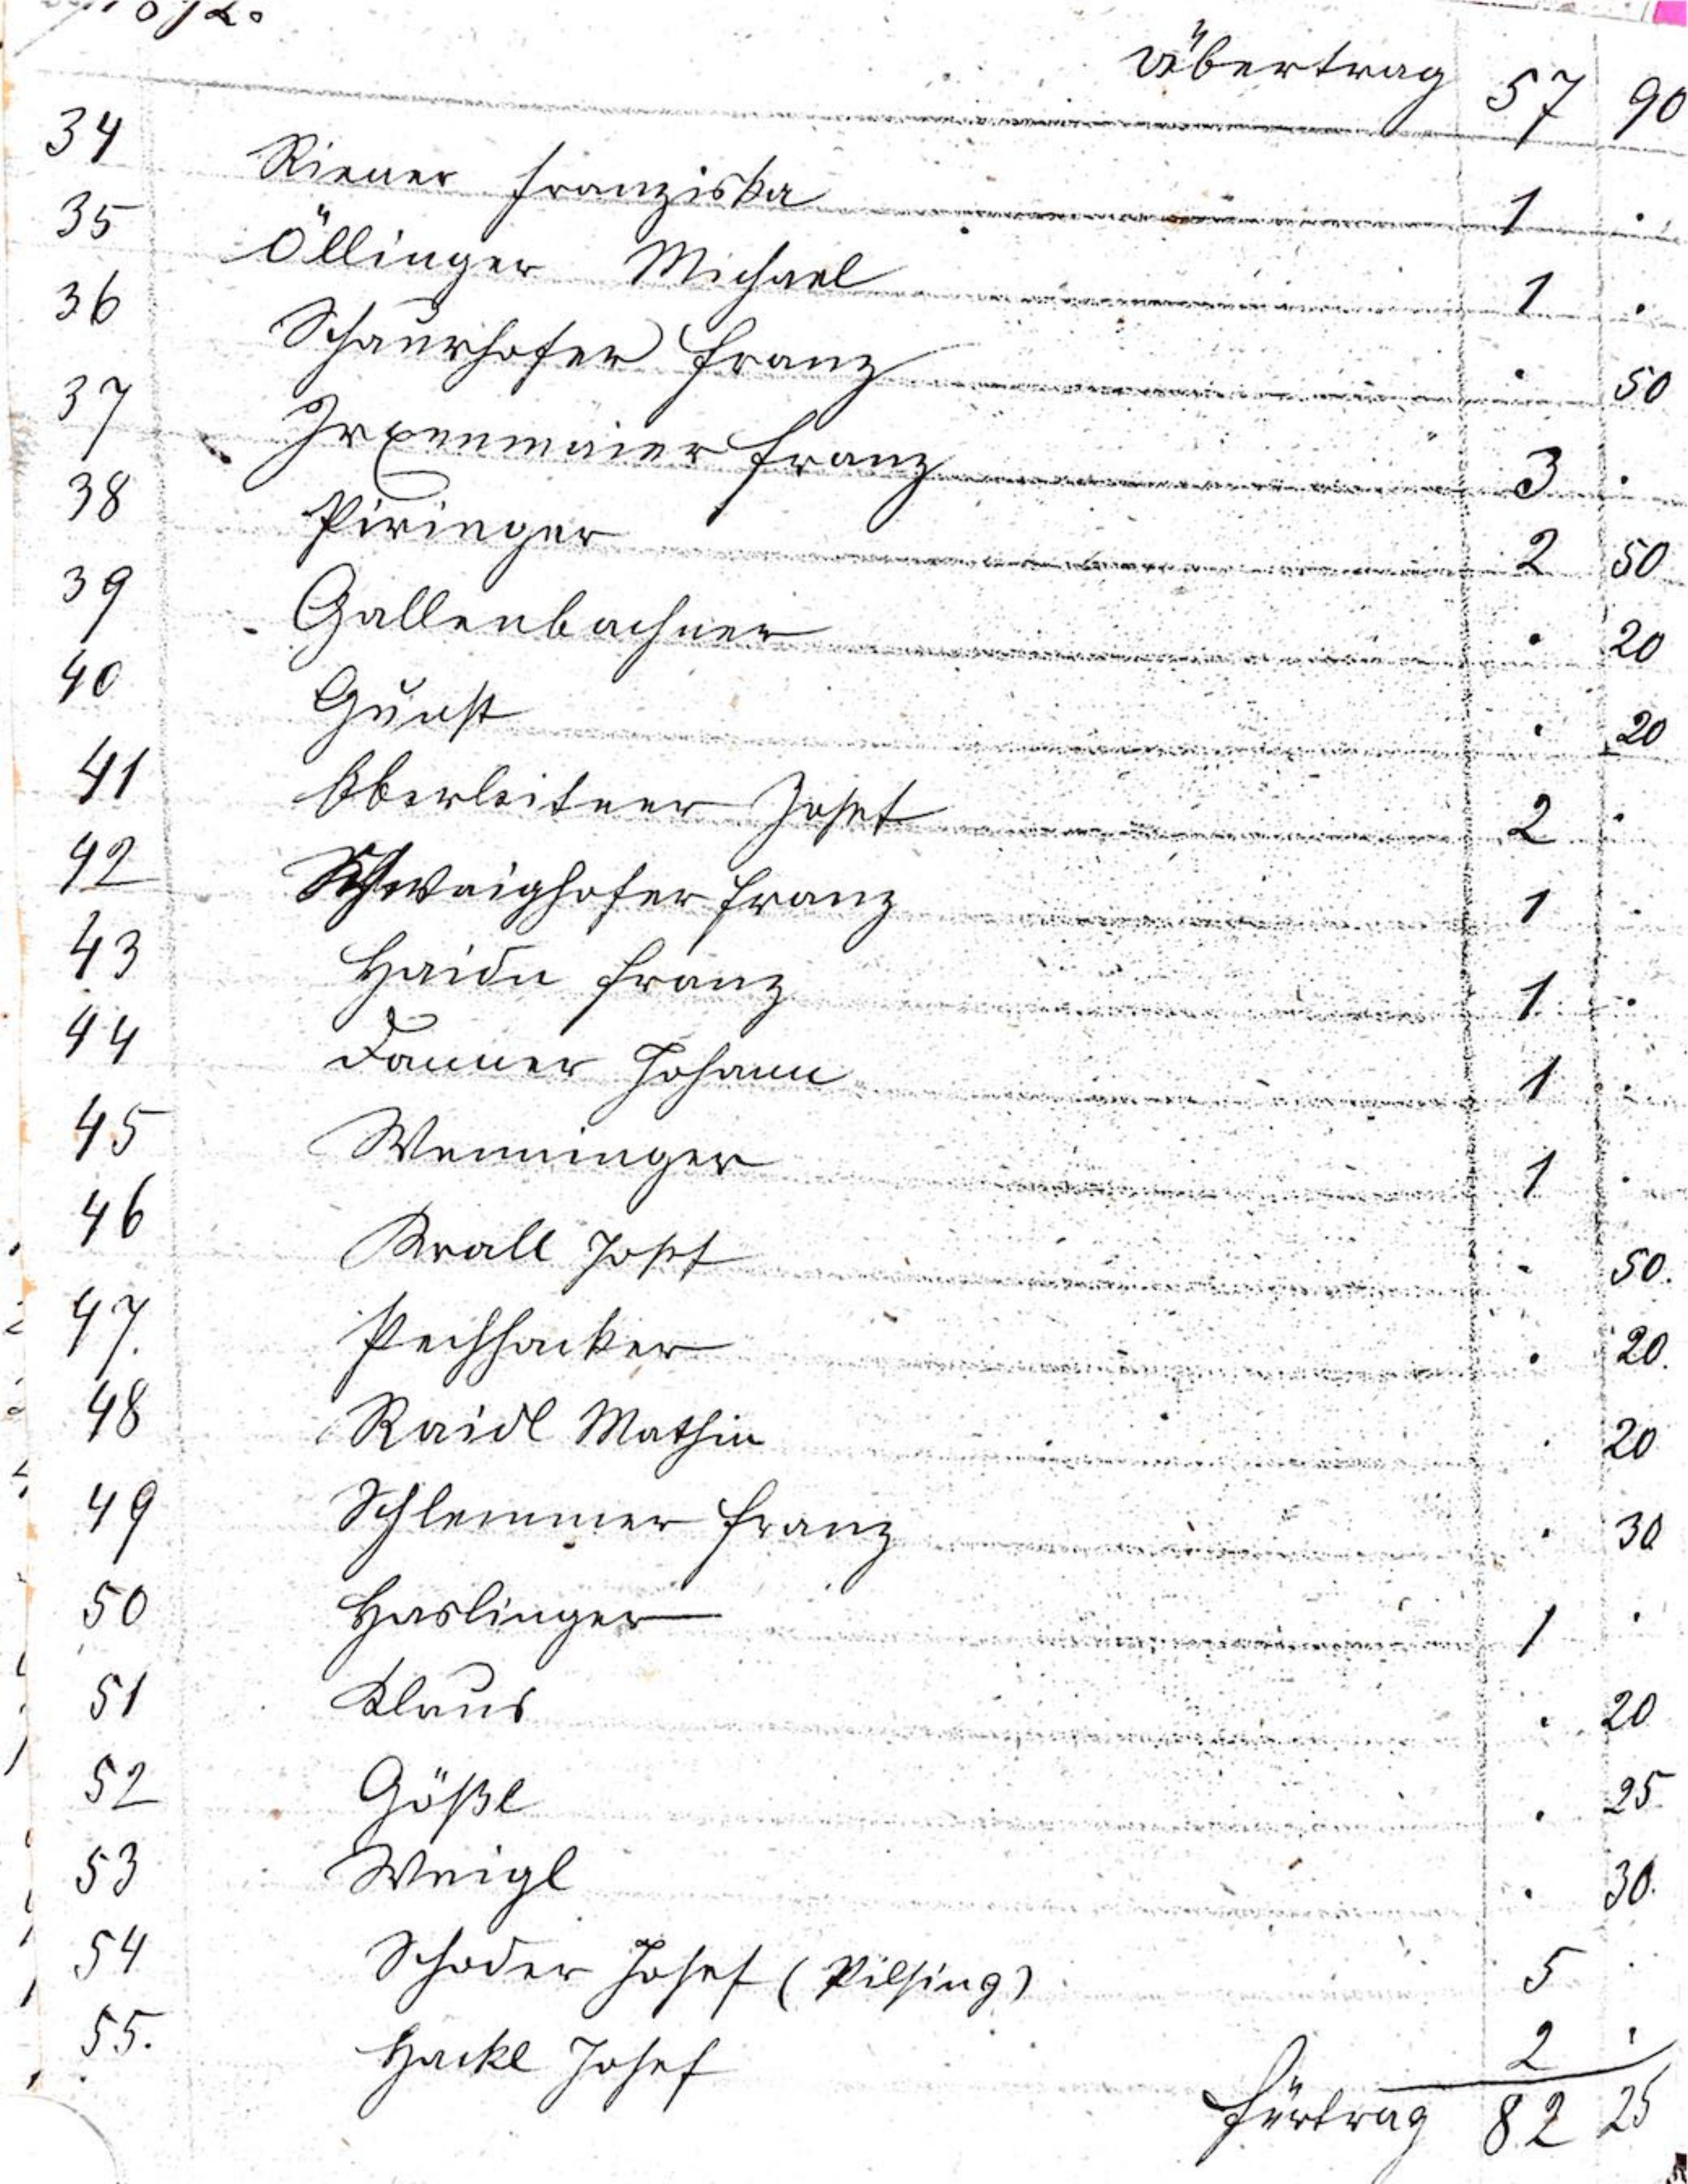 Übertrag 57 90
34 Riener Franziska 1 .
35 Öllinger Michael 1 .
36 Schaurhofer Franz . 50
37 Irxenmaier Franz 3 .
38 Piringer 2 50
39 Gallenbachner . 20
40 Gunst . 20
41 Oberleitner Josef 2 .
42 Schwaighofer Franz 1 .
43 Haidn Franz 1 .
44 Danner Johann 1 .
45 Wenninger 1 .
46 Krall Josef . 50.
47. Pechhacker . 20.
48 Raidl Mathia . 20
49 Schlemmer Franz . 30
50 Haslinger 1 .
51 Klaus . 20
52 Gößl . 25
53 Weigl . 30.
54 Schoder Josef (Pilsing) 5 .
55. Hackl Josef 2 .
Fürtrag 82 25